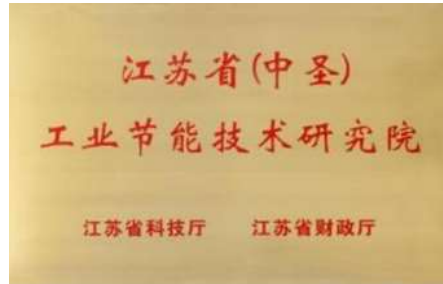 江苏省(中圣)
工业节能技术研究院
江苏省科技厅 江苏省财政厅